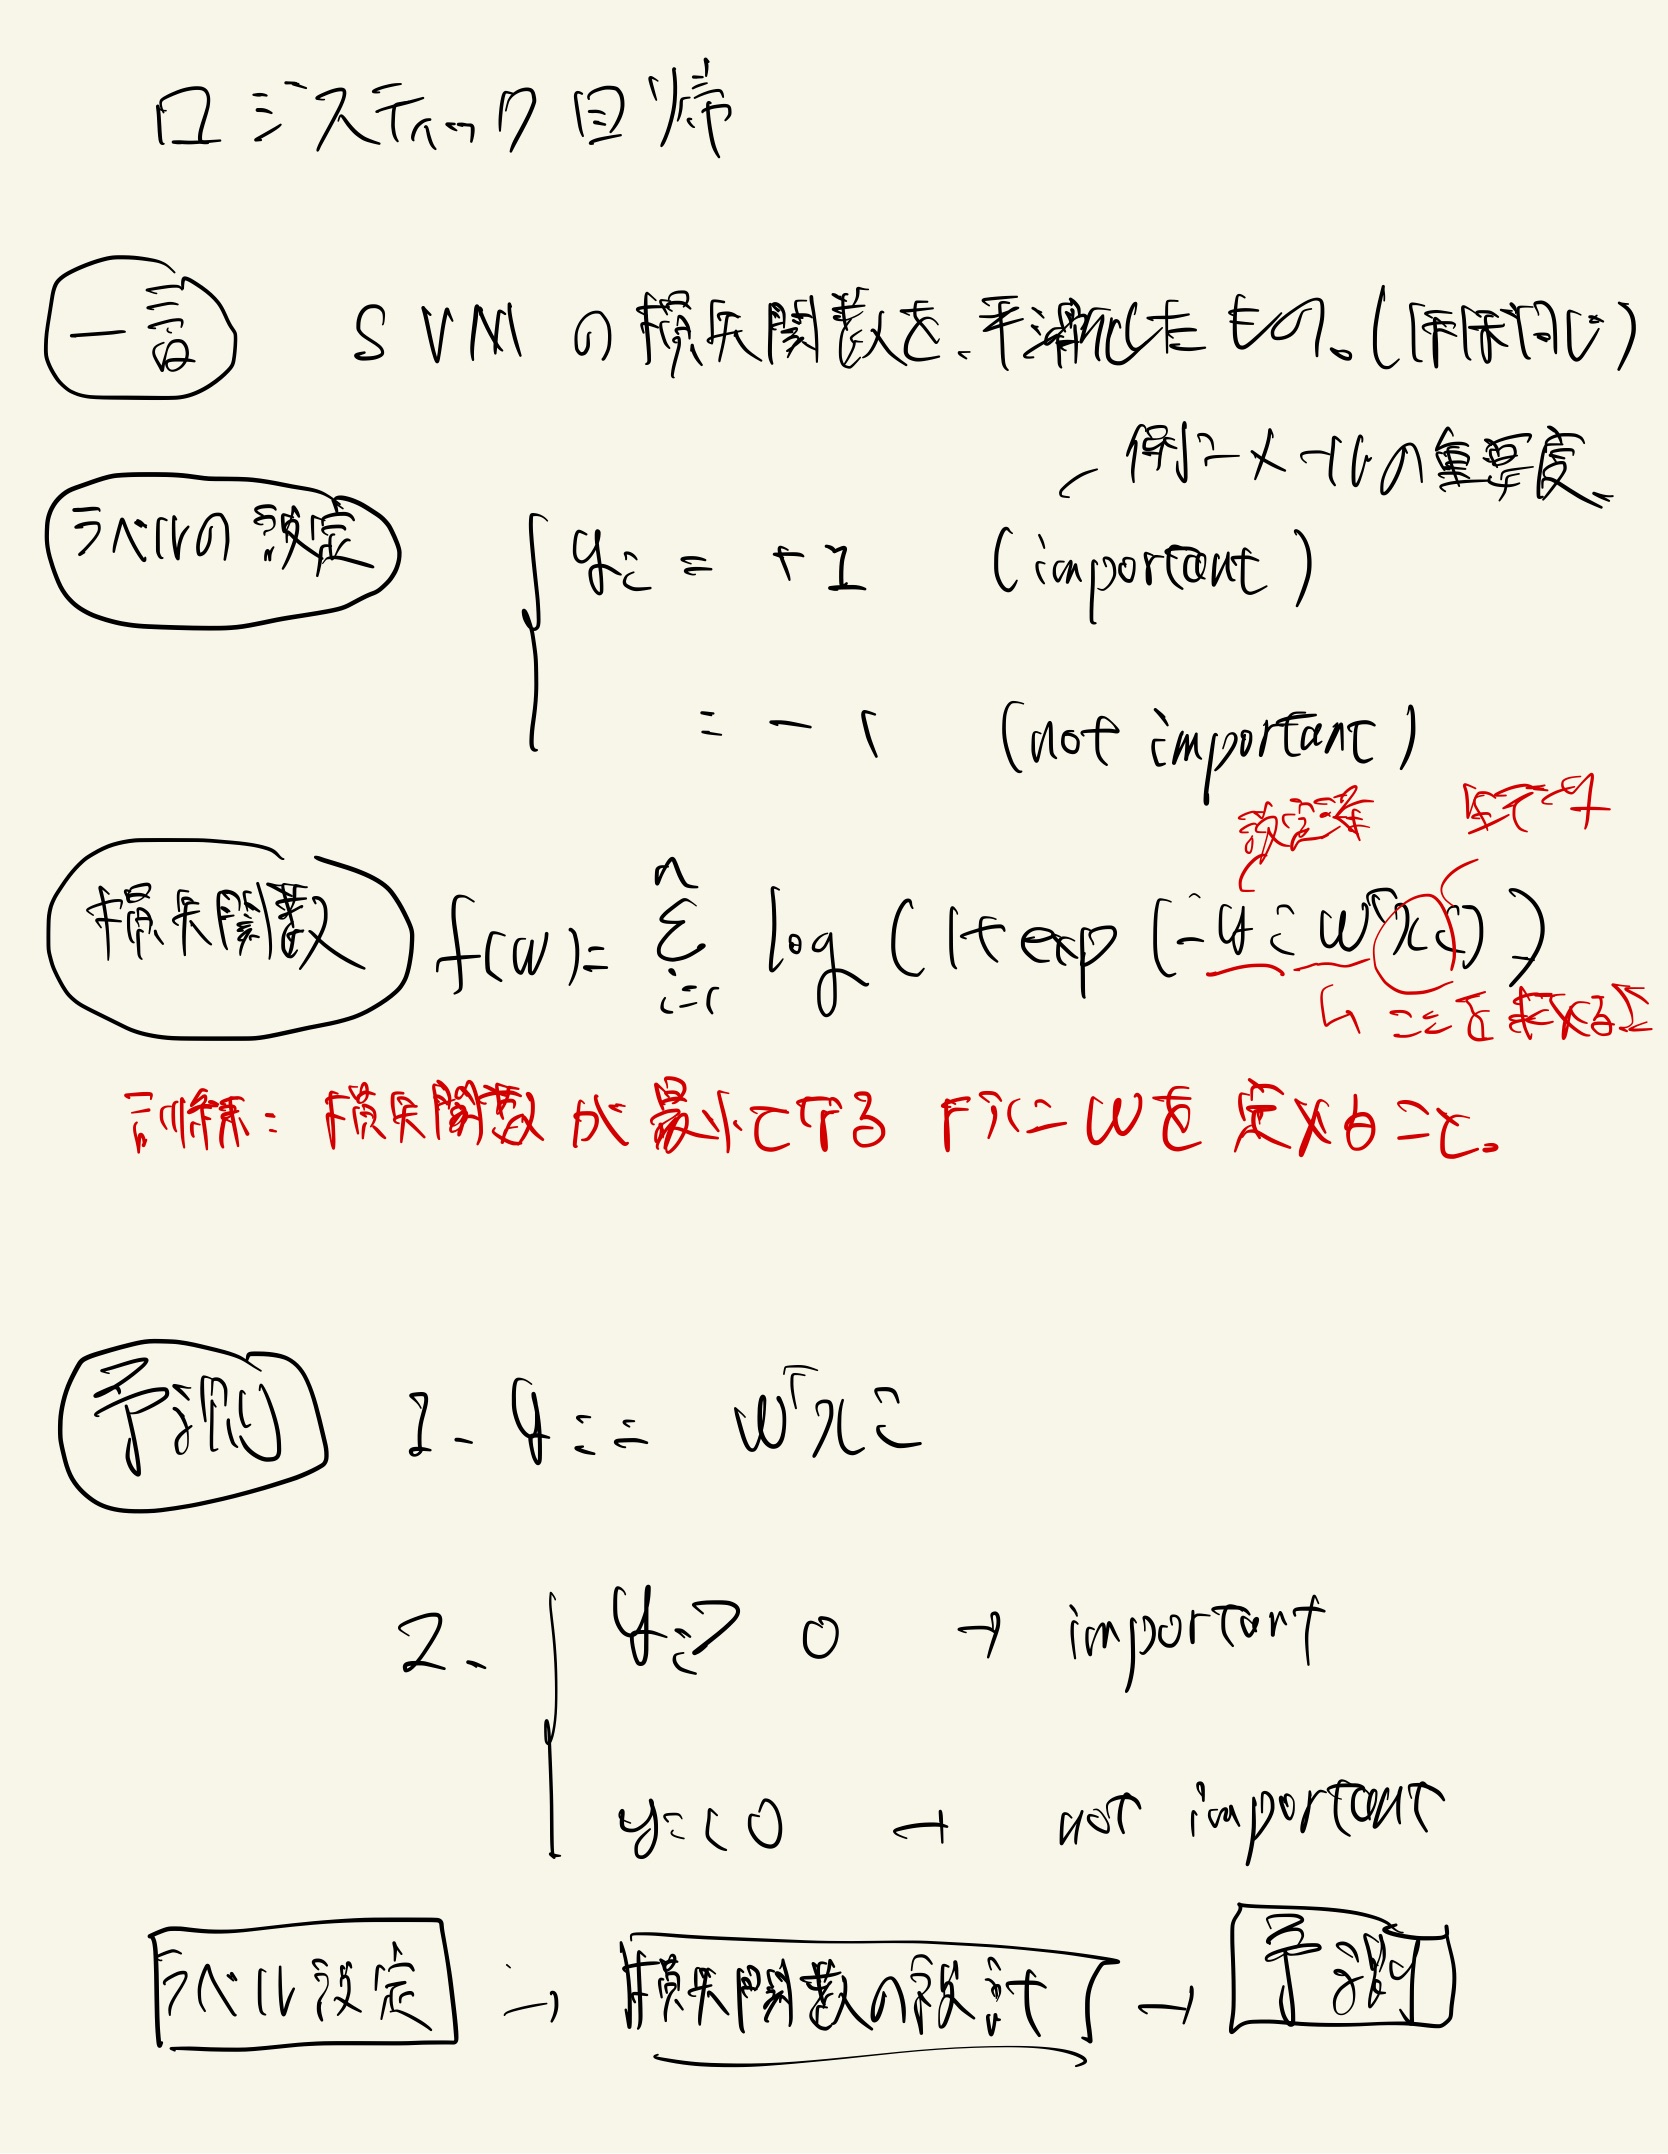 ロジスティック回帰
一言 SVMの損失関数を、平滑化したもの。(ほぼ同じ)
例) メールの重要度
ラベルの設定 { yi = +1 (important)
= -1 (not important)
設定済 全データ
損失関数 f(w) = Σ_{i=1}^{n} log (1 + exp (-yi wᵀxi))
↳ ここを求める
訓練: 損失関数が最小となるようにwを定めること。
予測 1. yi = wᵀxi
2. { yi > 0 → important
yi < 0 → not important
ラベル設定 → 損失関数の設計 → 予測